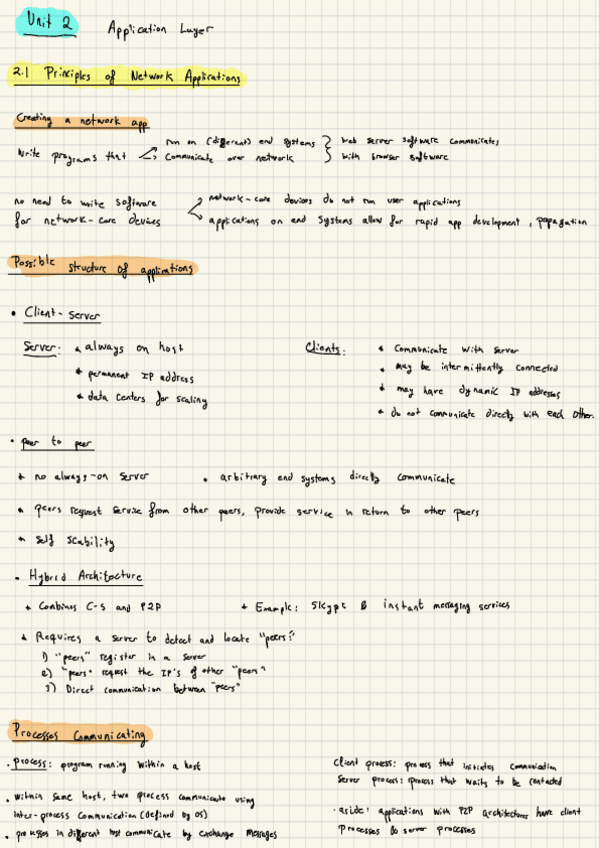 Unit 2 Application Layer
2.1 Principles of Network Applications
Creating a network app
write programs that
run on (different) end systems
communicate over network
web server software communicates
with browser software
no need to write software
for network-core devices
network-core devices do not run user applications
applications on end systems allow for rapid app development, propagation
Possible structure of applications
• Client-server
Server: * always on host
* permanent IP address
* data centers for scaling
Clients: * communicate with server
* may be intermittently connected
* may have dynamic IP addresses
* do not communicate directly with each other.
• peer to peer
* no always-on server
• arbitrary end systems directly communicate
* peers request service from other peers, provide service in return to other peers
* self scability
• Hybrid Architecture
* Combines C-S and P2P
* Example: Skype & instant messaging services
* Requires a server to detect and locate "peers"
1) "peers" register in a server
2) "peers" request the IP's of other "peers"
3) Direct communication between "peers"
Processes Communicating
• process: program running within a host
• within same host, two process communicate using
inter-process communication (defined by OS)
• processes in different host communicate by exchange messages
Client process: process that initiates communication
Server process: process that waits to be contacted
• aside: applications with P2P architectures have client
processes & server processes